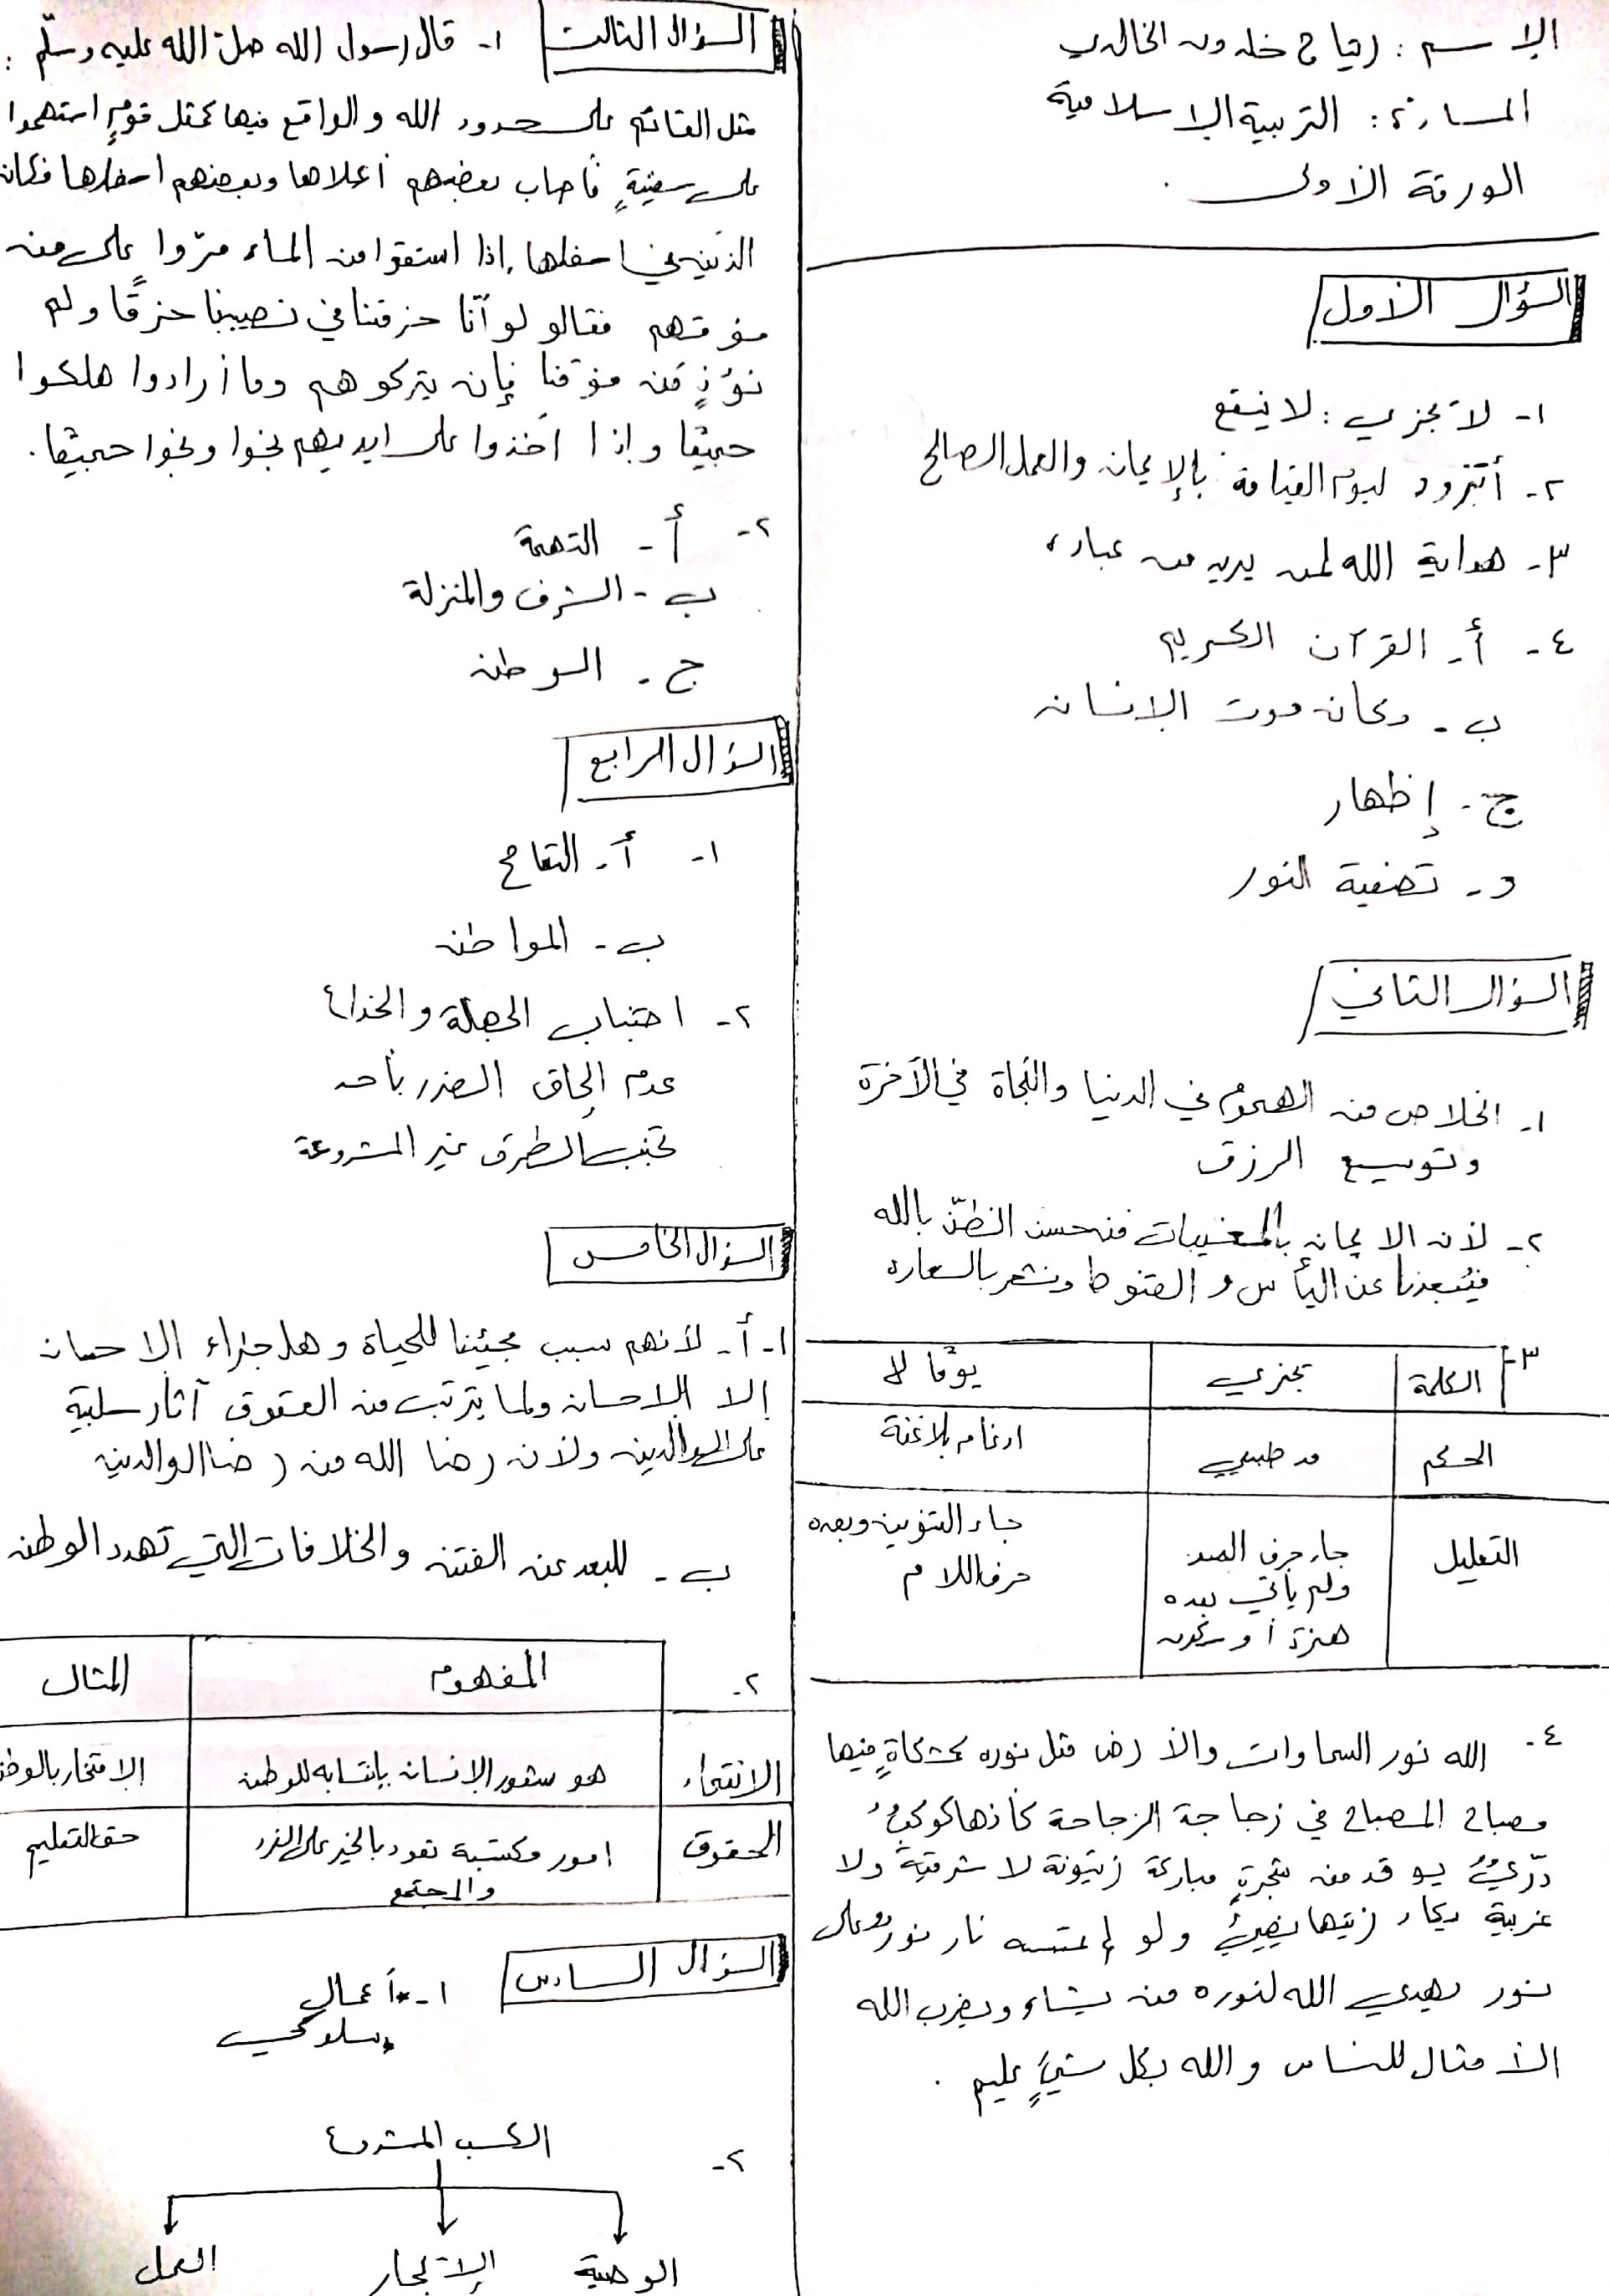 الاسم : رياح خلدون الخالدي
المادة : التربية الاسلامية
الورقة الأولى .
السؤال الأول
١- لا تجزي : لا ينفع
٢- أتزود ليوم القيامة بالإيمان والعمل الصالح
٣- هداية الله لمن يريد من عباده
٤- أ- القرآن الكريم
ب- مكان موت الانسان
ج- إظهار
د- تصفية النور
السؤال الثاني
١- الخلاص من الهموم في الدنيا والنجاة في الآخرة
وتوسيع الرزق
٢- لأن الايمان بالمغيبات من حسن الظنّ بالله
فيُبعدنا عن اليأس والقنوط ونشعر بالسعادة
٣-
الكلمة تجزي يومًا لا
الحكم مد طبيعي ادغام بلا غنة
التعليل جاء حرف المد ولم يأتي بعده همزة أو سكون جاء التنوين وبعده حرف اللام
٤- الله نور السماوات والأرض مثل نوره كمشكاةٍ فيها
مصباح المصباح في زجاجة الزجاجة كأنها كوكبٌ
درّيٌّ يوقد من شجرةٍ مباركة زيتونة لا شرقيةً ولا
غربية يكاد زيتها يضيئُ ولو لم تمسسه نار نورٌ على
نور يهدي الله لنوره من يشاء ويضرب الله
الأمثال للناس والله بكل شيءٍ عليم .
السؤال الثالث
١- قال رسول الله صلى الله عليه وسلّم :
مثل القائم على حدود الله والواقع فيها كمثل قومٍ استهموا
على سفينةٍ فأصاب بعضهم أعلاها وبعضهم اسفلها فكان
الذين في اسفلها إذا استقوا من الماء مرّوا على من
فوقهم فقالو لو أنّا خرقنا في نصيبنا خرقًا ولم
نؤذِ من فوقنا فإن يتركوهم وما أرادوا هلكوا
جميعًا وإذا أخذوا على ايديهم نجوا ونجوا جميعًا .
٢- أ- التهمة
ب- الشرف والمنزلة
ج- الوطن
السؤال الرابع
١- أ- التفاح
ب- المواطن
٢- اجتناب الحيلة والخداع
عدم إلحاق الضرر بأحد
تجنب الطرق غير المشروعة
السؤال الخامس
١- أ- لأنهم سبب مجيئنا للحياة وهل جزاء الاحسان
إلا الاحسان ولما يترتب من العقوق آثار سلبية
على الوالدين ولأن رضا الله من رضا الوالدين
ب- للبعد عن الفتن والخلافات التي تهدد الوطن
٢-
المفهوم المثال
الانتماء هو شعور الإنسان بانتسابه للوطن الافتخار بالوطن
الحقوق امور مكتسبة تعود بالخير على الفرد والمجتمع حق التعليم
السؤال السادس
١- أعمالي
سلوكي
٢-
الكسب المشروع
الوصية الإتجار العمل